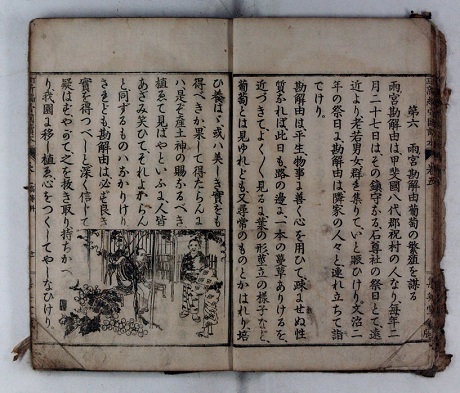 第六　雨宮勘解由葡萄の繁殖を謀る
雨宮勘解由は、甲斐國八代郡祝村の人なり、毎年三
月二十七日は、その鎮守なる石尊社の祭日とて、遠
近より老若男女群き集りて、いと賑ひけり、文治二
年の祭日よ、勘解由は、隣家の人々と連れ立ちて詣
でけり。
勘解由は、平生物事よ善く心を用ひて、疎ませぬ性
質なれば、此日も、路の邊よ、一本の蔓草ありけるを、
近づきてよく〳〵見るよ、葉の形、莖立の様子など、
葡萄とは見ゆれども、又尋常のものとかはれり、培
ひ養はゞ、或ハ美しき實をも
得べきか、果して得たらんよ
ハ、是ぞ産土神の賜なるべき、
植ゑて見ばやといふよ、人皆
あざみ笑ひて、それよからん
と同ずるものハなかりけり、
されども、勘解由は、必ず良き
實を得つべしと深く信じて、
縦はず、やがて之を抜き取り持ちかへ
り、我園よ移し植ゑ、心をつくしてやしなひけり、